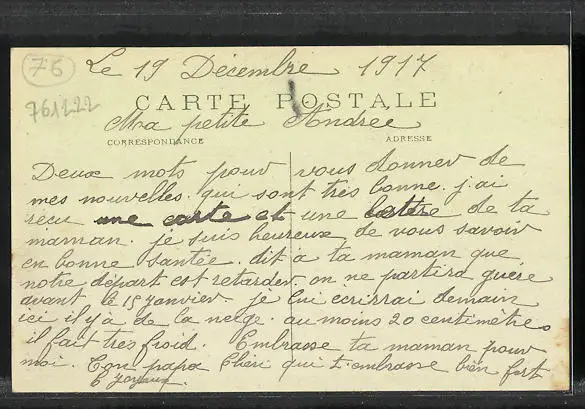 76
Le 19 Décembre 1917
761222
CARTE POSTALE
Ma petite Andrée
CORRESPONDANCE
ADRESSE
Deux mots pour vous donner de
mes nouvelles. qui sont très bonne. j'ai
récu une carte et une lettre de ta
maman. je suis heureux de vous savoir
en bonne santée. dit à ta maman que
notre départ est retarder. on ne partira guère
avant le 15 janvier. je lui écrirrai demain
ici il y a de la neige. au moins 20 centimètres
il fait très froid. Embrasse ta maman pour
moi. Ton papa Chéri qui t'embrasse bien fort